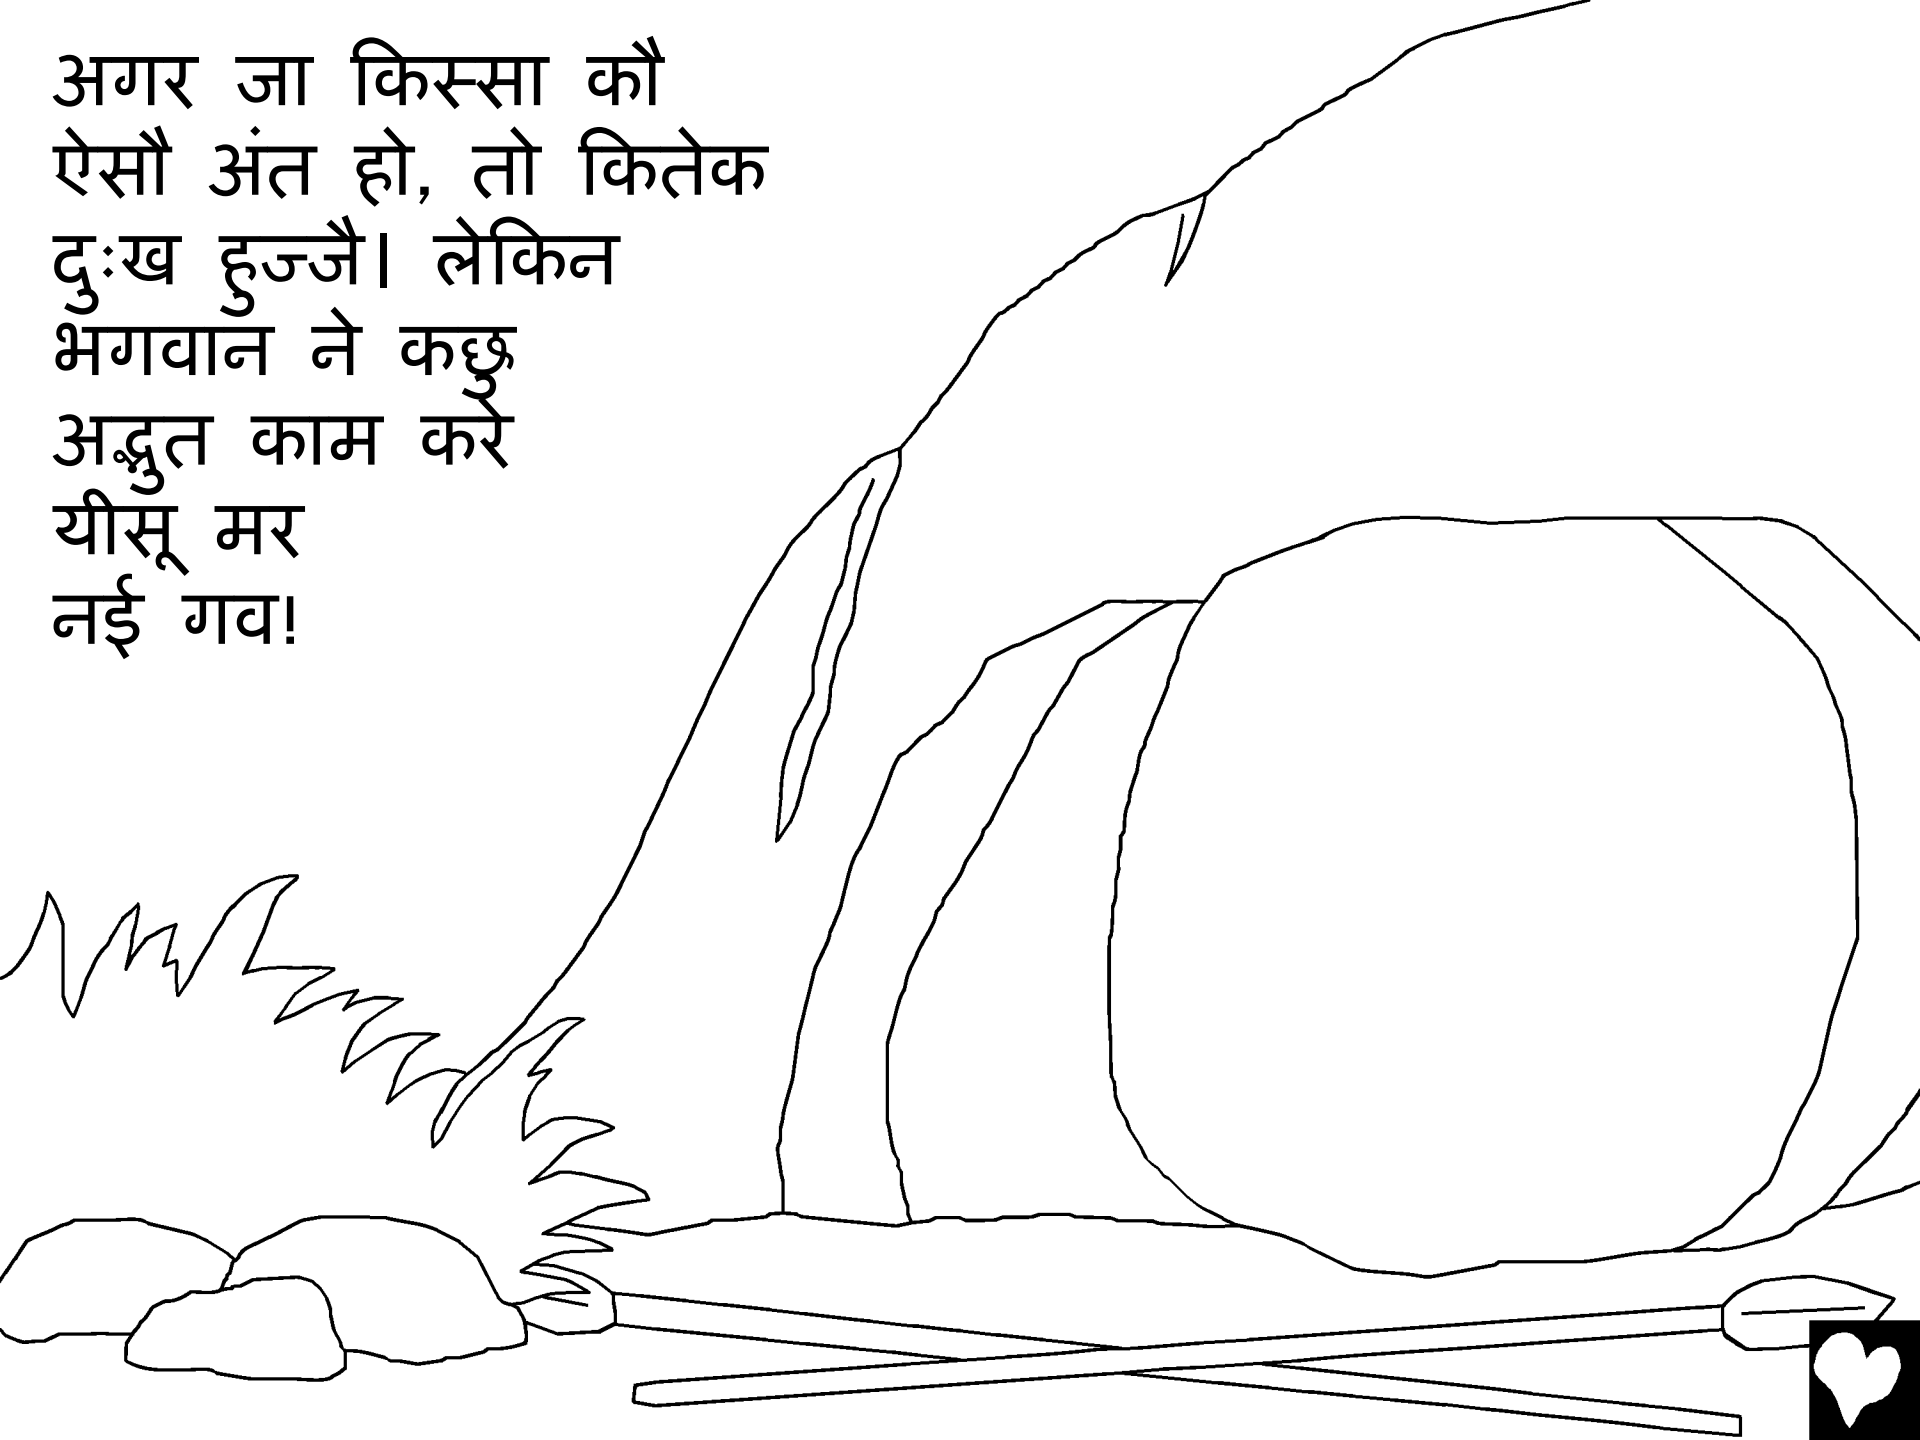 अगर जा किस्सा कौ
ऐसौ अंत हो, तो कितेक
दुःख हुज्जै। लेकिन
भगवान ने कछु
अद्भुत काम करे
यीसू मर
नई गव!